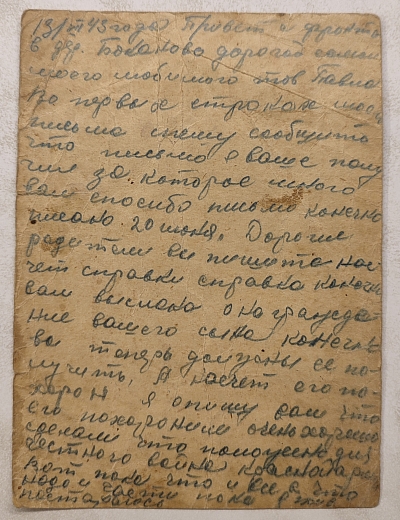 13/VII 43 года Привет с фронта
в дер. Баканово дорогой семьи
моего любимого тов Павла
На первы е строках моего
письма спешу сообщить
что письмо я ваше полу
чил за которое много
вам спосибо письмо конечно
писано 20 июня. Дорогие
родители вы пишите нас
чет справки справка конечн
вам выслана о награжде-
ние вашего сына конечно
вы теперь должны ее по-
лучить, А насчет его по-
хорон я опишу вам что
его похоронили очень хорошо
сделали что положено для
честного война красноарм
Вот пока что и все в что
надо
пока жив